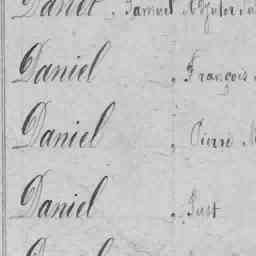 Daniel, Samuel
Daniel, François
Daniel, Pierre
Daniel, Just